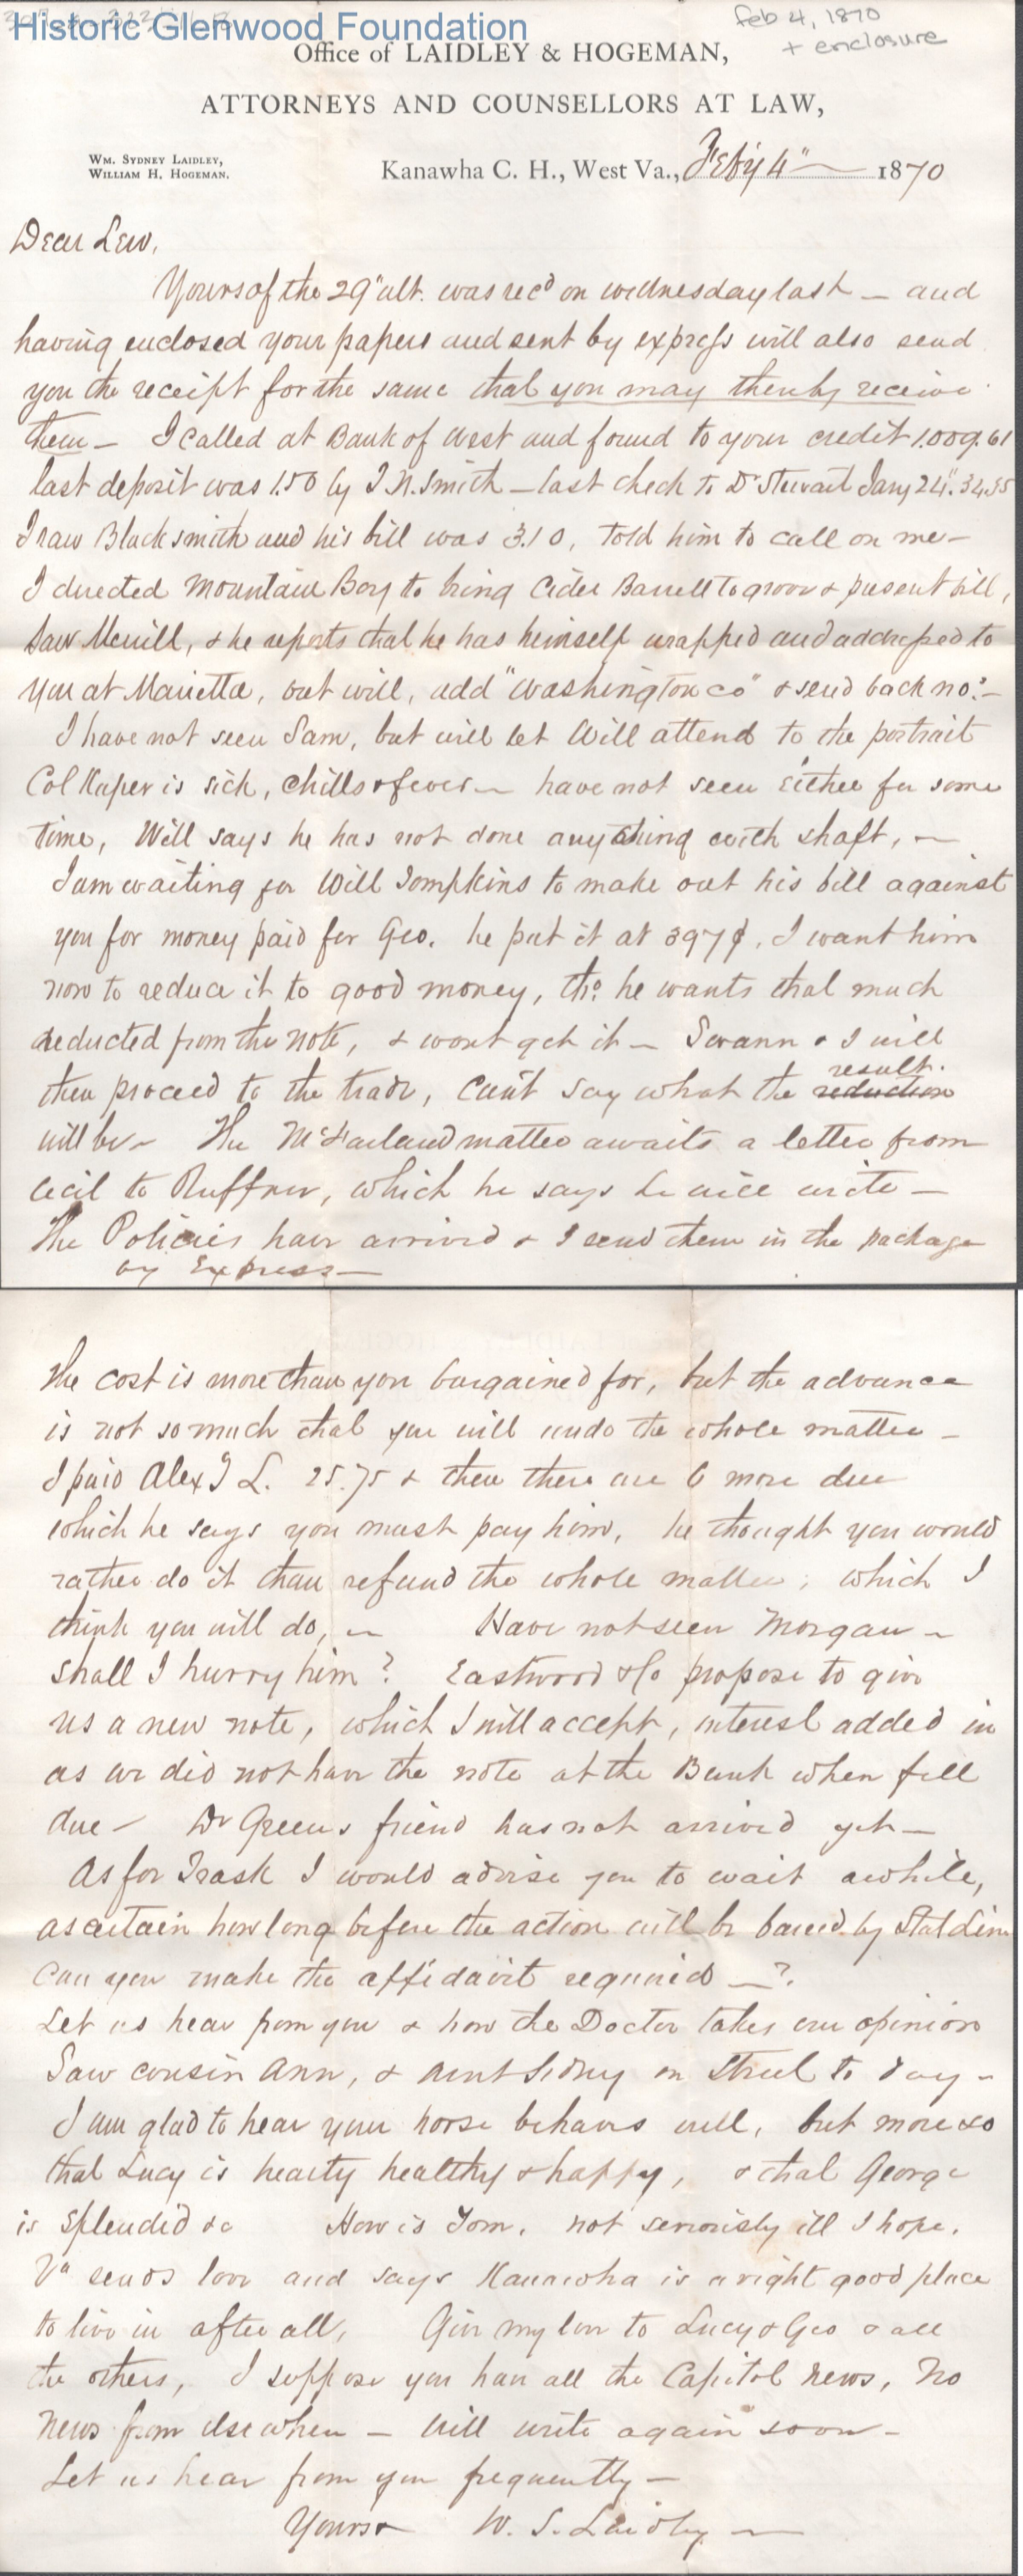 Historic Glenwood Foundation
Feb 4, 1870
+ enclosure
Office of LAIDLEY & HOGEMAN,
ATTORNEYS AND COUNSELLORS AT LAW,
WM. SYDNEY LAIDLEY,
WILLIAM H. HOGEMAN.
Kanawha C. H., West Va., Feby 4" 1870
Dear Lew,
Yours of the 29" ult. was recd on wednesday last — and
having enclosed your papers and sent by express will also send
you the receipt for the same that you may thereby receive
them — I called at Bank of West and found to your credit 1.009.61
last deposit was 1.50 by I. N. Smith — last check to Dr Stewart Jany 24". 34.35
I saw Blacksmith and his bill was 3.10, told him to call on me —
I directed Mountain Boy to bring Cider Barrell to & present bill,
Saw Merrill, & he reports that he has himself wrapped and addressed to
you at Marietta, but will, add "Washington Co" & send back no.s —
I have not seen Sam, but will let Will attend to the portrait
Col is sick, chills & fever — have not seen Either for some
time, Will says he has not done anything with shaft, —
I am waiting for Will Tompkins to make out his bill against
you for money paid for Geo. he put it at 397 $. I want him
now to reduce it to good money, tho he wants that much
deducted from the note, & wont get it — Swann & I will
then proceed to the trade, Can't say what the reduction result.
will be — The McFarland matter awaits a letter from
Cecil to Ruffner, which he says he will write —
The Policies have arrived & I send them in the package
by Express —
The cost is more than you bargained for, but the advance
is not so much that you will undo the whole matter —
I paid Alex T L. 25.75 & then there are 6 more due
which he says you must pay him, he thought you would
rather do it than refund the whole matter, which I
think you will do, — Have not seen Morgan —
Shall I hurry him? Eastwood & Co propose to give
us a new note, which I will accept, interest added in
as we did not have the note at the Bank when fell
due — Dr Greens friend has not arrived yet —
As for Trask I would advise you to wait awhile,
ascertain how long before the action will be barred by Stat Lim
Can you make the affidavit required —?
Let us hear from you & how the Doctor takes our opinion
Saw cousin Ann, & Aunt Sidney on Street to day —
I am glad to hear your horse behaves well, but more so
that Lucy is hearty healthy & happy, & that George
is splendid &c How is Tom, not seriously ill I hope.
Va sends love and says Kanawha is a right good place
to live in after all, Give my love to Lucy & Geo & all
the others, I suppose you have all the Capitol news, No
news from elsewhere — Will write again soon —
Let us hear from you frequently —
Yours & W. S. Laidley —